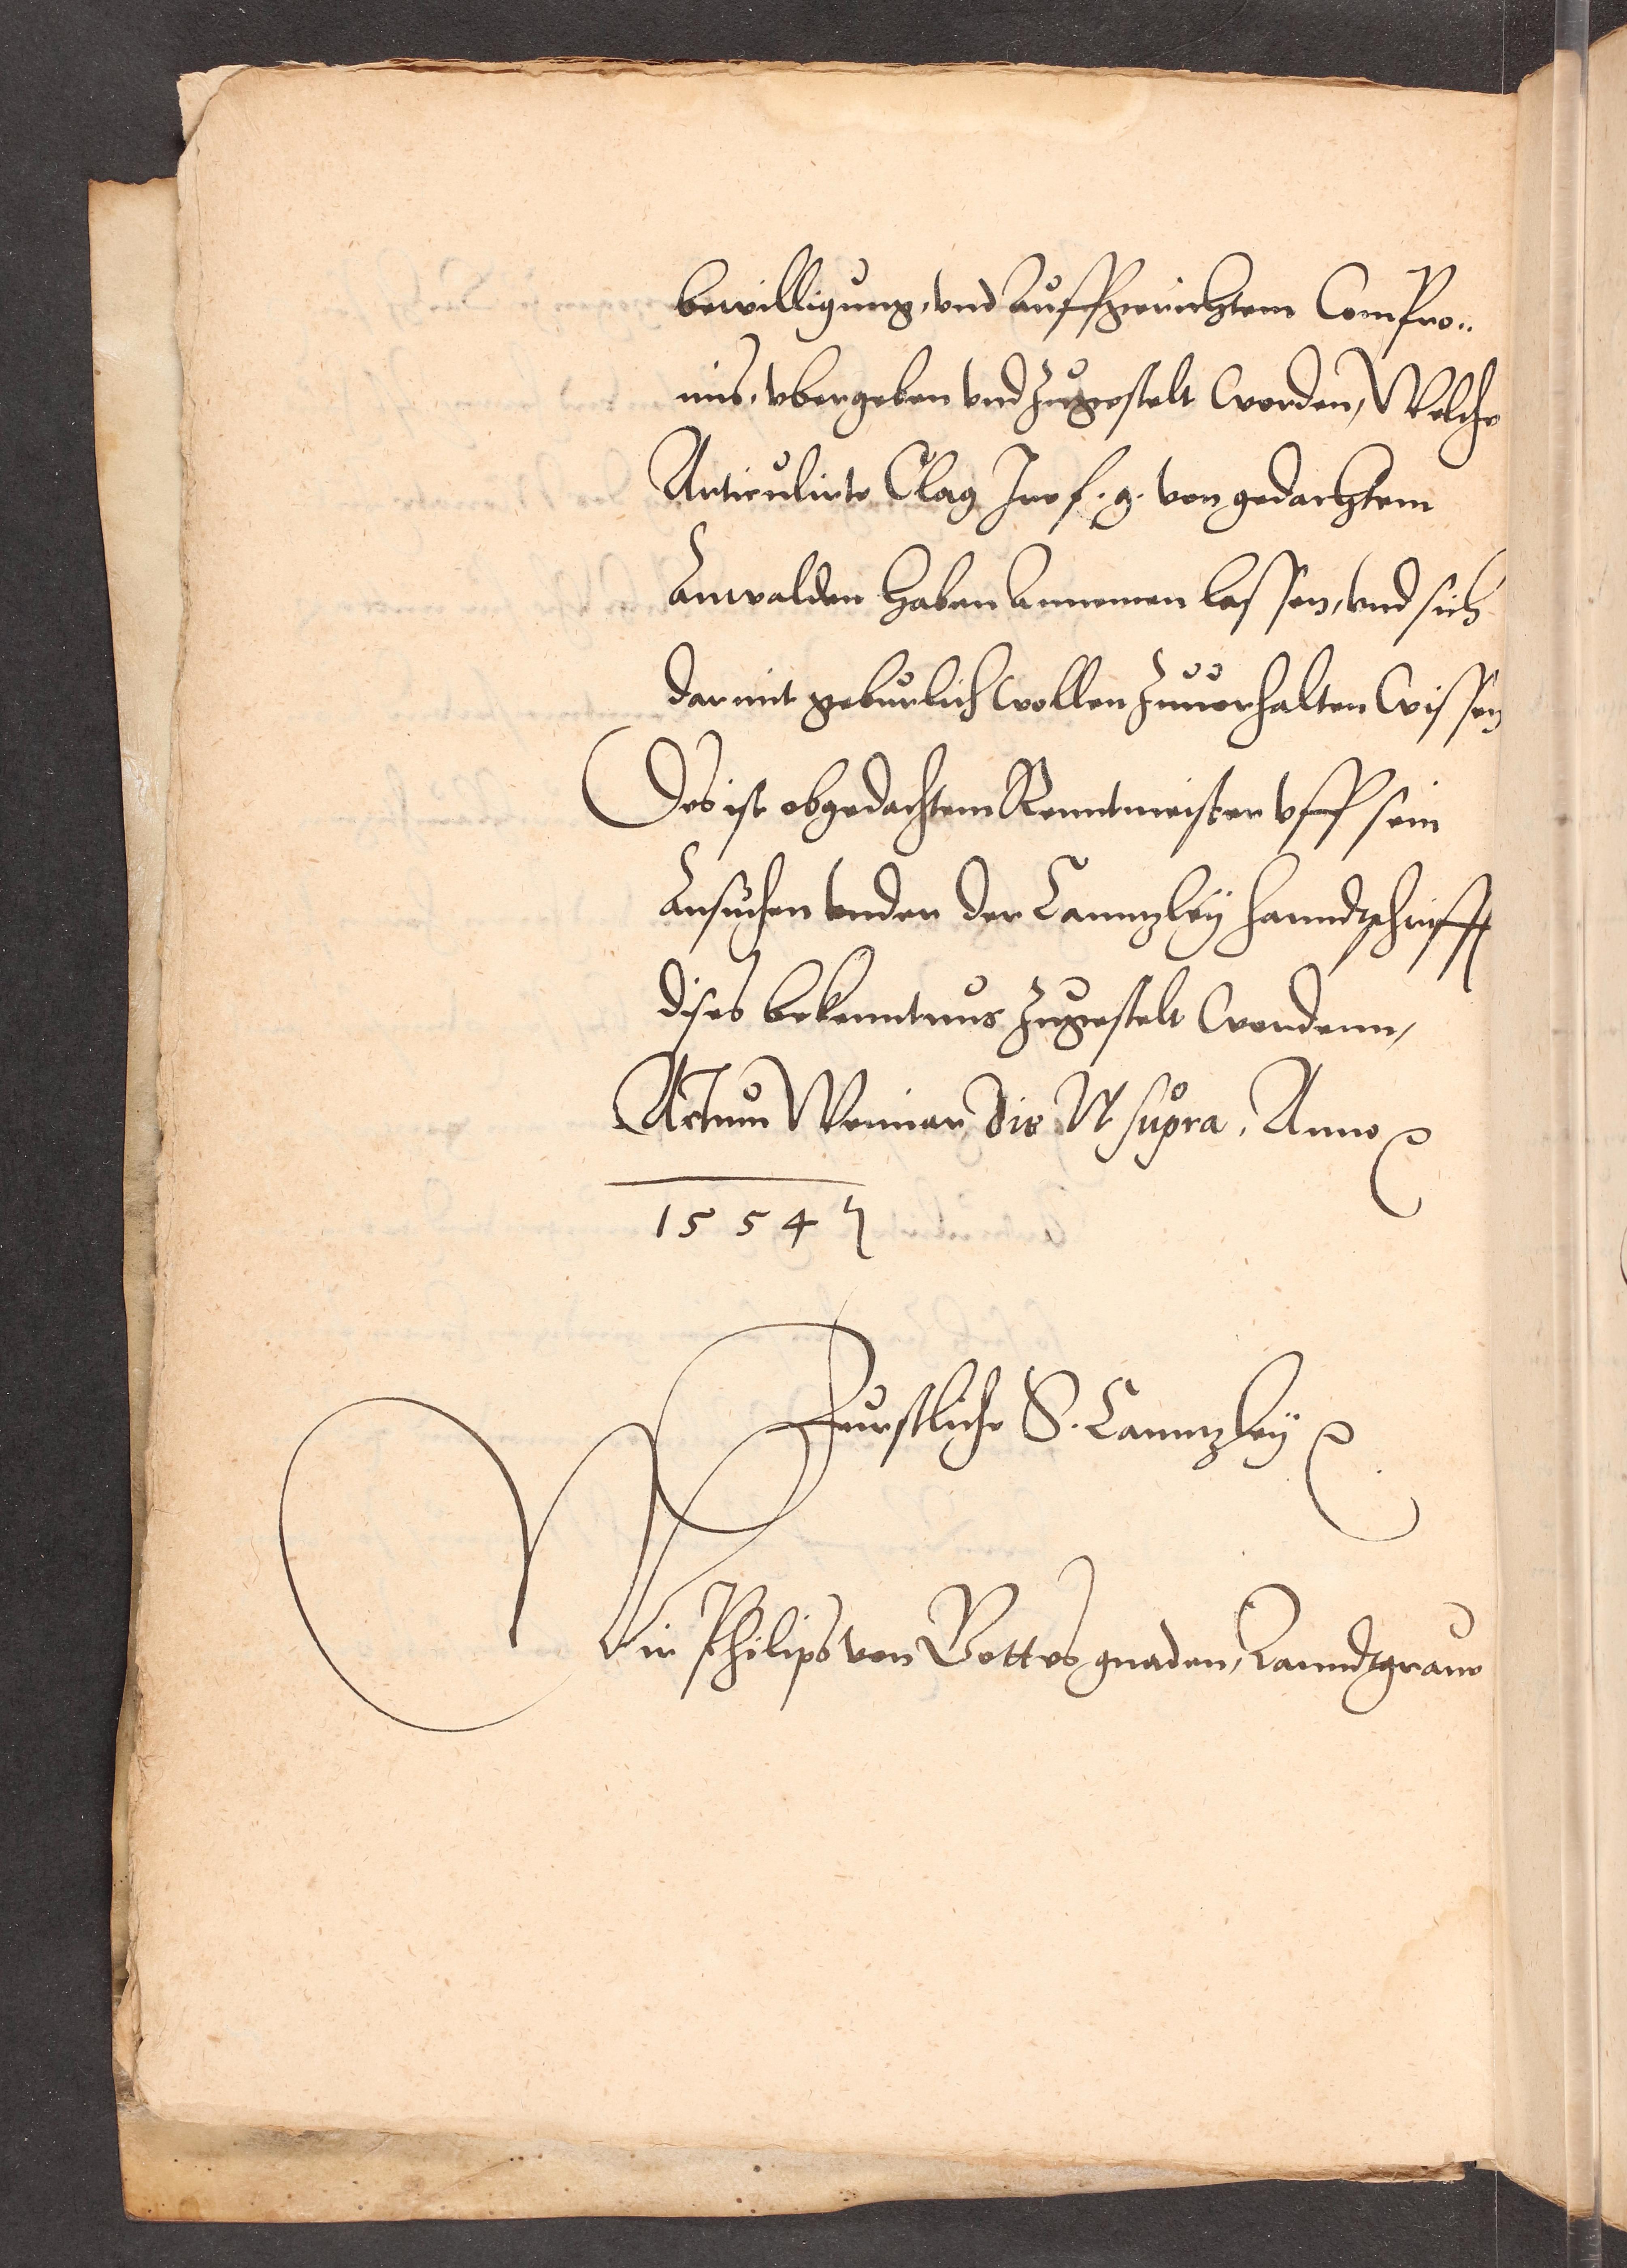 bewilligung, vnd auffgerichtem Compro-
mis, vbergeben vnd zugestelt worden, Welche
Articulirte Clag Ire f. g. von gedachtem
Anwalden haben annemen lassen, vnd sich
darmit geburlich wollen zuuerhalten wissen
Des ist obgedachtem Renntmeister vff sein
Ansuchen vnder der Canntzley hanndtschrifft
dises bekenntnus zugestelt wordenn,
Actum Weimar die Vt supra, Anno
1554
Feurstliche S. Canntzley
Wir Philips von Gottes gnaden, Lanndtgraue